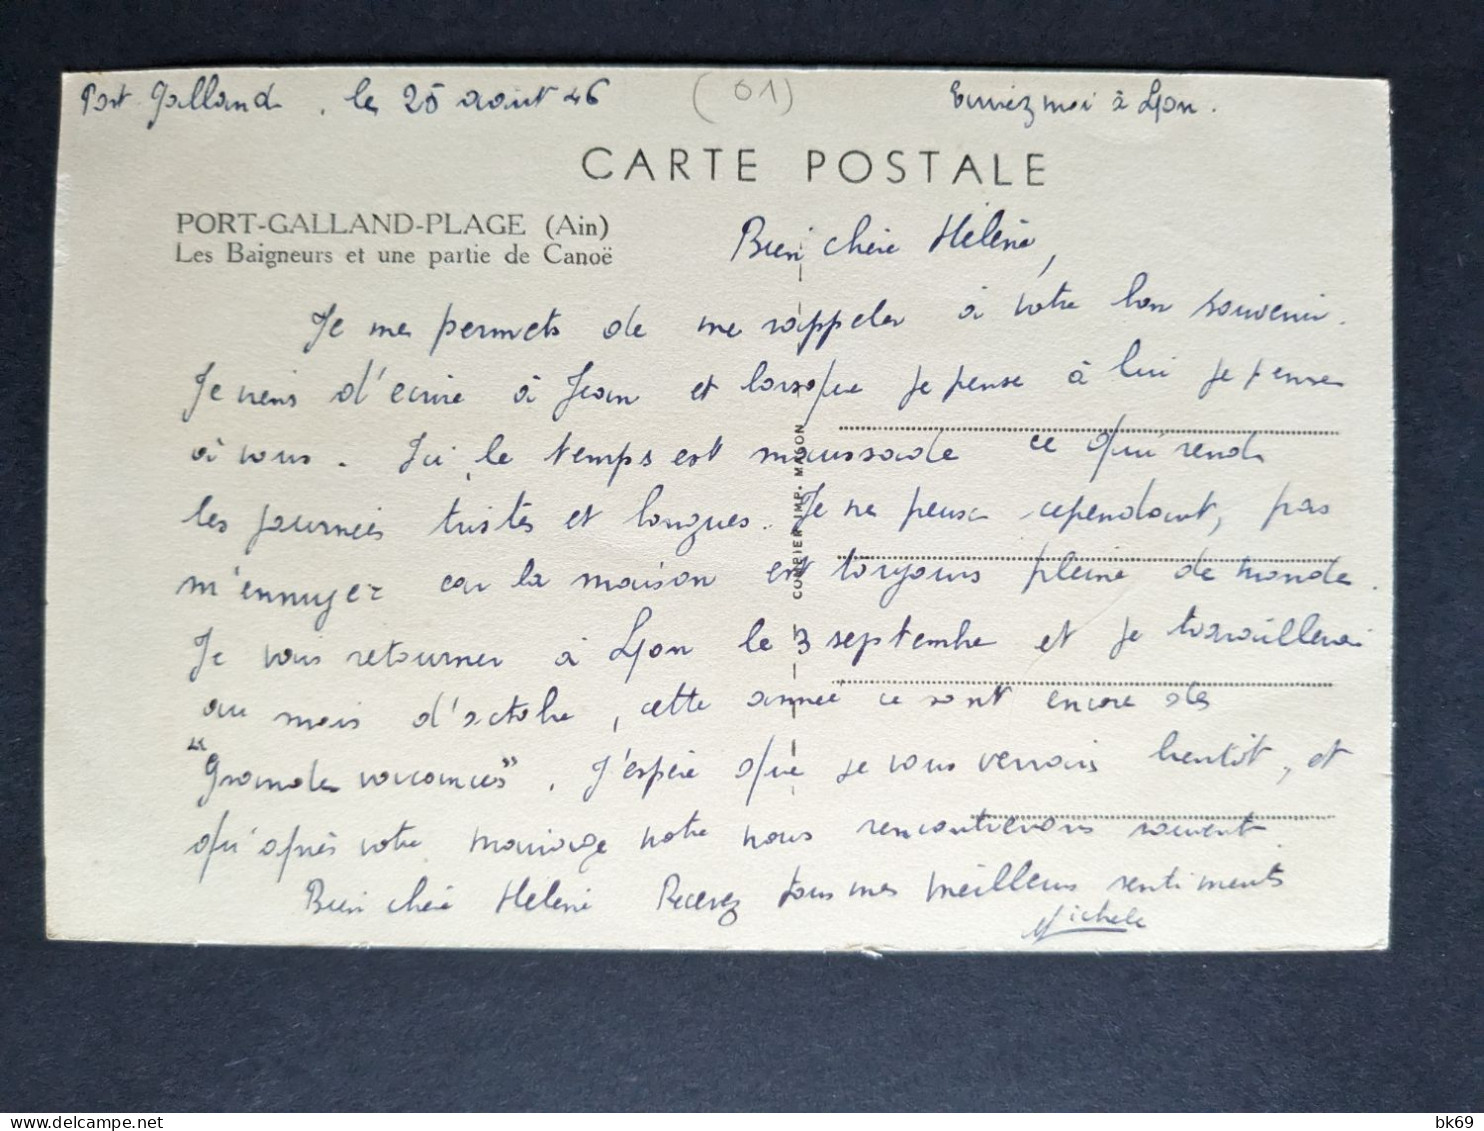 Port Galland, le 25 août 46 (01) Ecrivez moi à Lyon.
CARTE POSTALE
PORT-GALLAND-PLAGE (Ain)
Les Baigneurs et une partie de Canoë
Bien chère Hélène,
Je me permets de me rappeler à votre bon souvenir.
Je viens d'écrire à Jean et lorsque je pense à lui je pense
à vous. Ici le temps est maussade ce qui rend
les journées tristes et longues. Je ne peux cependant, pas
m'ennuyer car la maison est toujours pleine de monde.
Je vais retourner à Lyon le 3 septembre et je travaillerai
au mois d'octobre, cette année ce sont encore des
"Grandes vacances". J'espère que je vous verrais bientôt, et
qu'après votre mariage nous nous rencontrerons souvent.
Bien chère Hélène Recevez tous mes meilleurs sentiments
Michele
COMBIER IMP. MACON
bk69